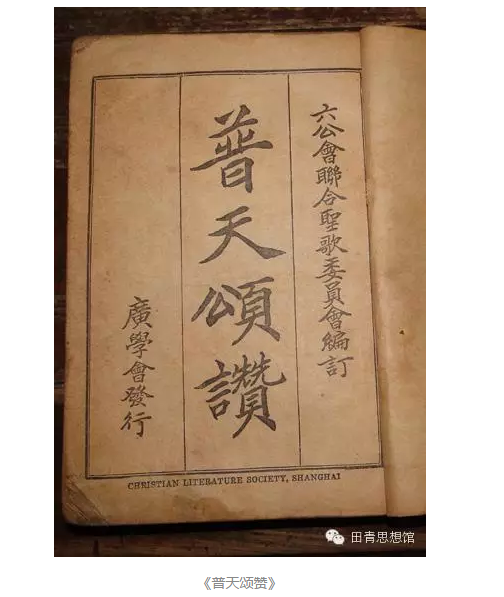 六公會聯合聖歌委員會編訂
普天頌讚
廣學會發行
CHRISTIAN LITERATURE SOCIETY, SHANGHAI
田青思想馆
《普天颂赞》